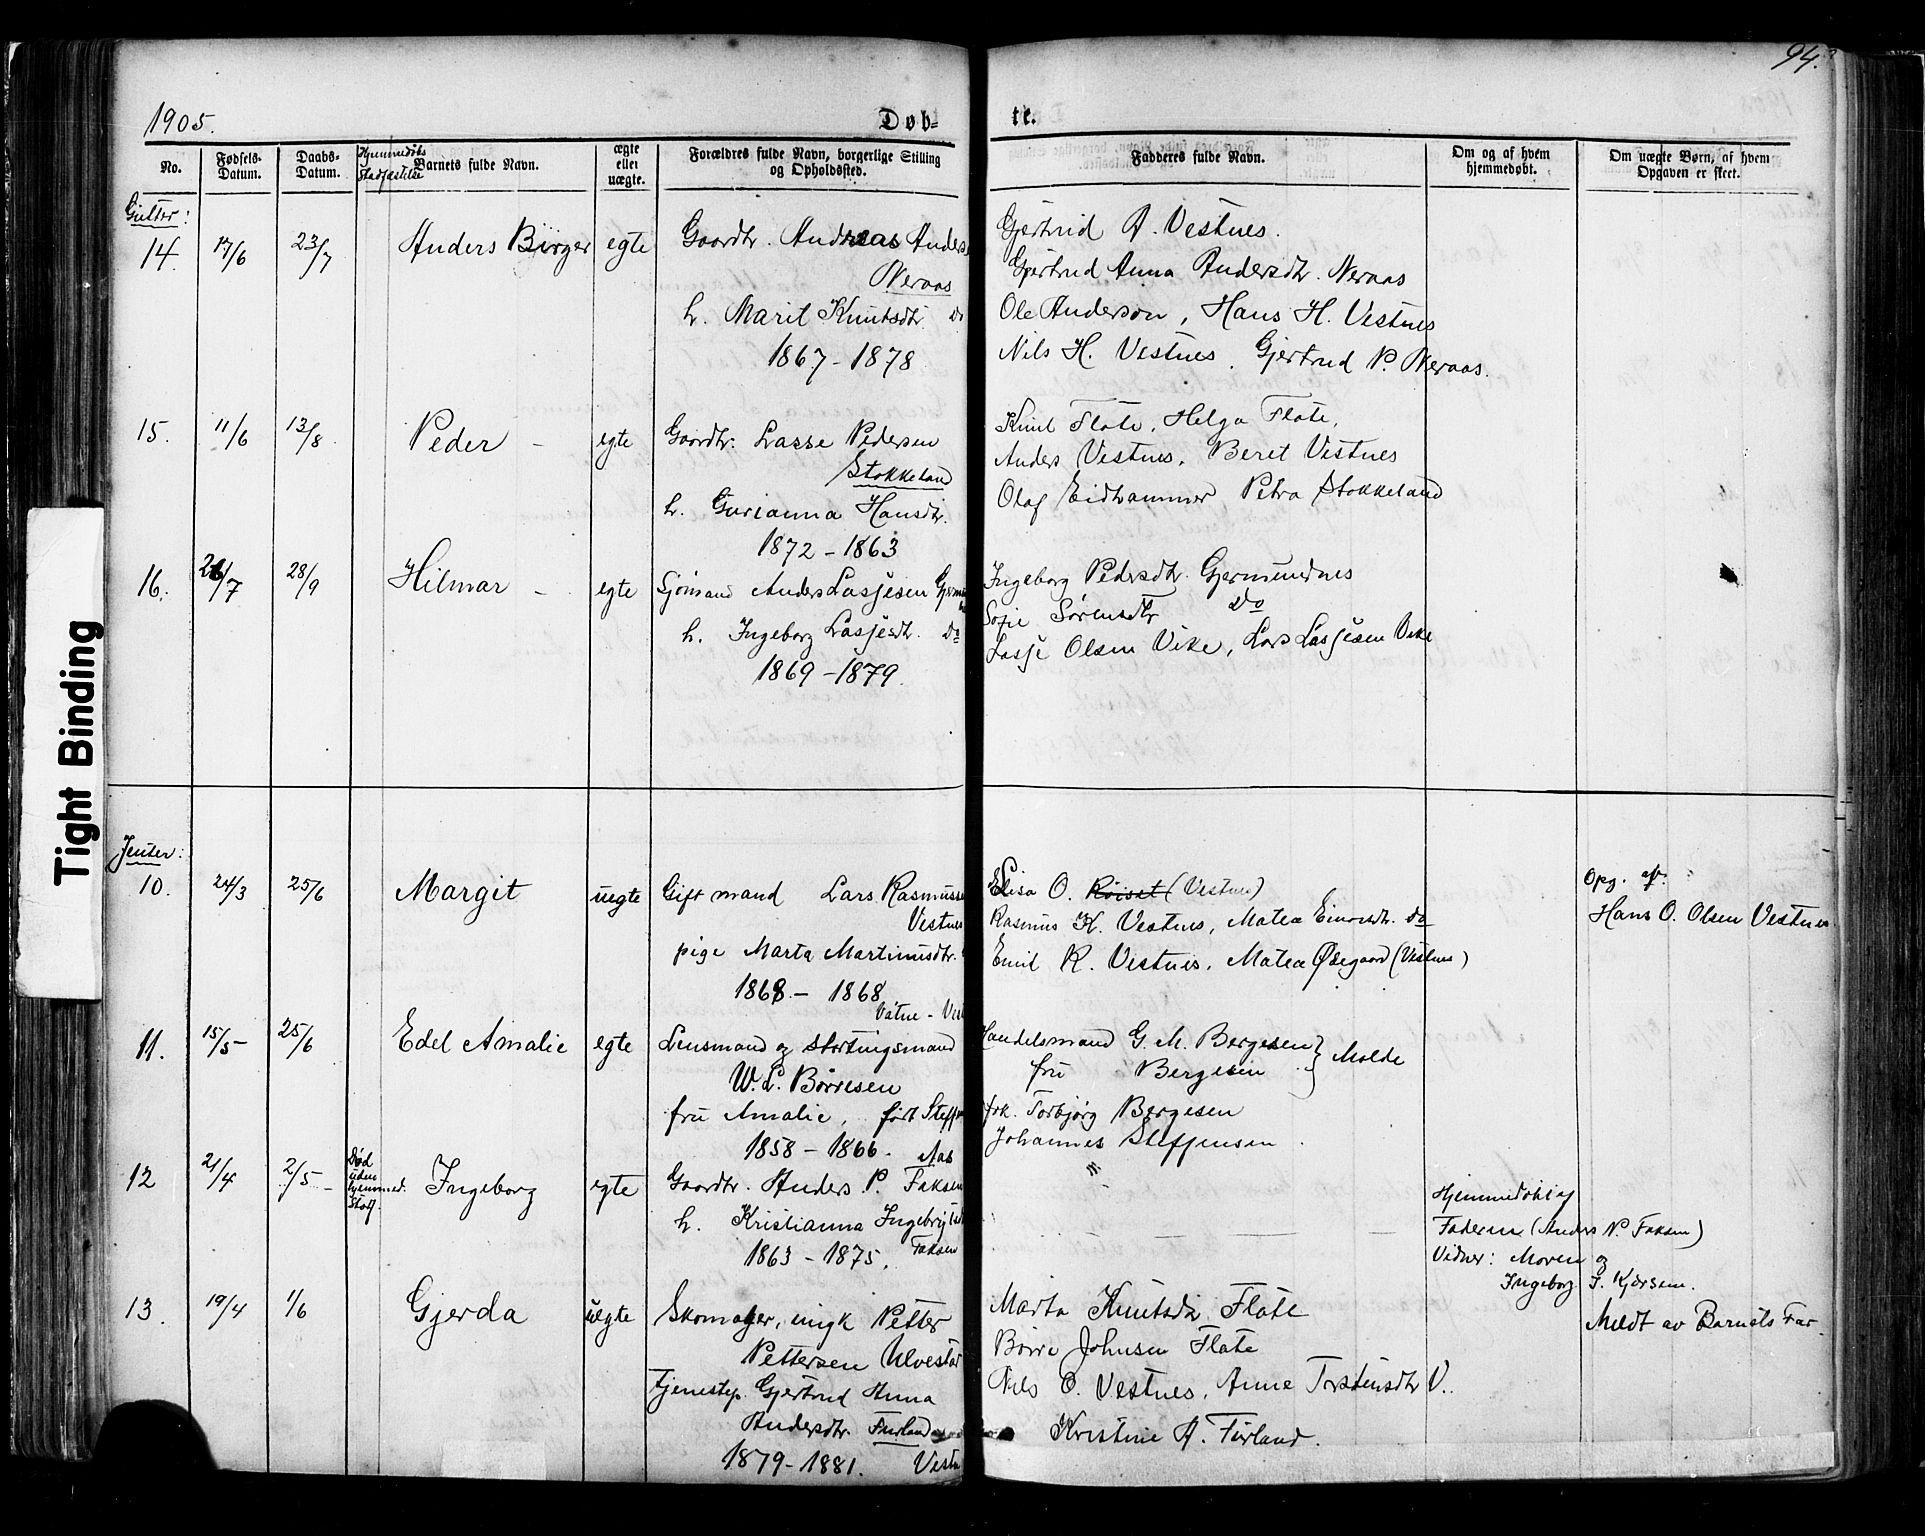 94.
1905.
Døb-
te.
No.
Fødsels-
Datum.
Daabs-
Datum.
Hjemmedøbs
Stadfæstelse
Barnets fulde Navn.
ægte
eller
uægte.
Forældres fulde Navn, borgerlige Stilling
og Opholdssted.
Fadderes fulde Navn.
Om og af hvem
hjemmedøbt.
Om uægte Børn, af hvem
Opgaven er skeet.
Gutter:
14. 17/6 23/7 Anders Birger egte Gaardbr. Andreas Anders
Neraas
h. Marit Knutsdtr. Do
1867 - 1878
Gjertrud A. Vestnes.
Gjertrud Anna Andersdtr. Neraas
Ole Anderson, Hans H. Vestnes
Nils H. Vestnes. Gjertrud P. Neraas.
15. 11/6 13/8 Peder - egte Gaardbr. Lasse Pedersen
Stokkeland
h. Gurianna Hansdtr.
1872 - 1863
Knut Flate, Helga Flate,
Anders Vestnes, Beret Vestnes
Olaf Eidhammer Petra Stokkeland
16. 28/9 Hilmar - egte Sjömand Anders Lasjesen
h. Ingeborg Lasjesdtr. Do
1869 - 1879.
Ingeborg Pedersdtr. Gjermundnes
Sofie Sørensdtr Do
Lasje Olsen Vike, Lars Lasjesen Vike
Jenter:
10. 24/3 25/6 Margit uegte Gift mand Lars Rasmuss
Vestnes
pige Marta Martinusdtr.
1868 - 1868
Elisa O. Røiset (Vestnes)
Rasmus K. Vestnes, Matea Einarsdtr. Do
Emil R. Vestnes, Matea Ødegaard (Vestnes)
Opg. af
Hans O. Olsen Vestnes.
Vatne - Vest
11. 15/5 - 25/6 Edel Amalie egte Lensmand og stortingsmand
W. L. Börresen
fru Amalie, född Steff
1858 - 1866.
Handelsmand G. M. Bergesen } Molde
fru Bergesen
frk. Torbjørg Bergesen
Johannes Steffensen.
Aas
12 21/4 2/5 - Død
uden
hjemmed.
Staf.
Ingeborg egte Gaardbr. Anders P. Faksen
h. Kristianna
1863 - 1875. Faksen
Hjemmedøbt af
Faderen (Anders P. Faksen)
Vidner: Moren og
Ingeborg J. Kjersem.
13. 19/4 1/6 Gjerda uegte Skomager, ungk Petter
Pettersen Ulvestad
Tjenestep. Gjertrud Anna
Andersdtr. Furland
1879 - 1881. Vestn
Marta Knutsdtr Flate
Börre Johnsen Flate
Nils O. Vestnes, Anne Torstensdtr V.
Kristine A. Furland.
Meldt av Barnets Far.
Tight Binding